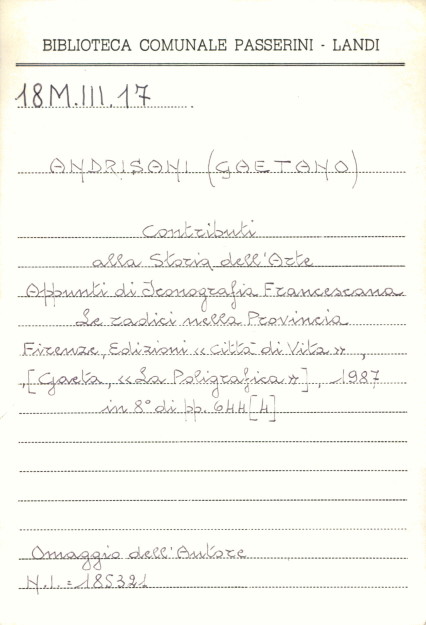 BIBLIOTECA COMUNALE PASSERINI - LANDI
18M.III.17
ANDRISANI (GAETANO)
Contributi
alla Storia dell'Arte
Appunti di Iconografia Francescana
Le radici nella Provincia
Firenze, Edizioni «Città di Vita»,
[Gaeta, «La Poligrafica»], 1987
in 8° di pp. 644[4]
Omaggio dell'Autore
N.I. = 185321